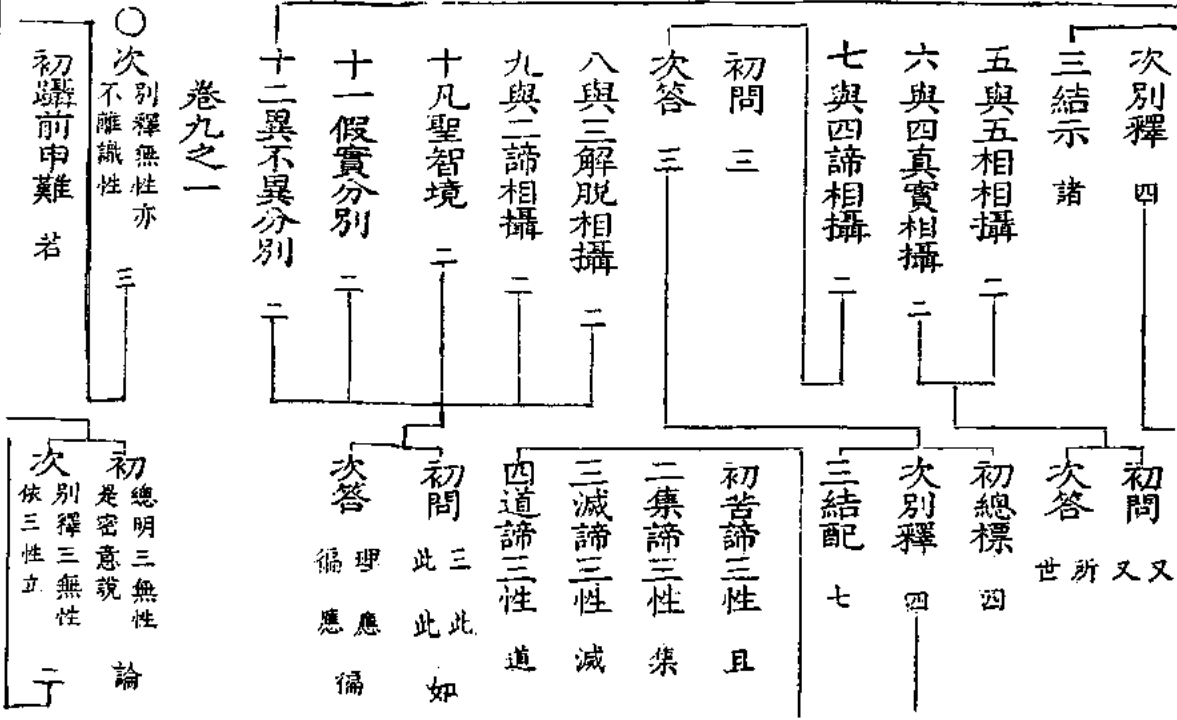 次別釋 四
三結示 諸
五與五相相攝 二
六與四真實相攝 二
七與四諦相攝 二
初問 三
次答 三
八與三解脫相攝 二
九與二諦相攝 二
十凡聖智境 二
十一假實分別 二
十二異不異分別 二
卷九之一
○次 別釋無性亦不離識性 三
初躡前申難 若
初問 又又
次答 所世
初總標 四
次別釋 四
三結配 七
初苦諦三性 且
二集諦三性 集
三滅諦三性 滅
四道諦三性 道
初問 三此如此此
次答 理應徧徧應
初 總明三無性是密意說 論
次 別釋三無性依三性立 二